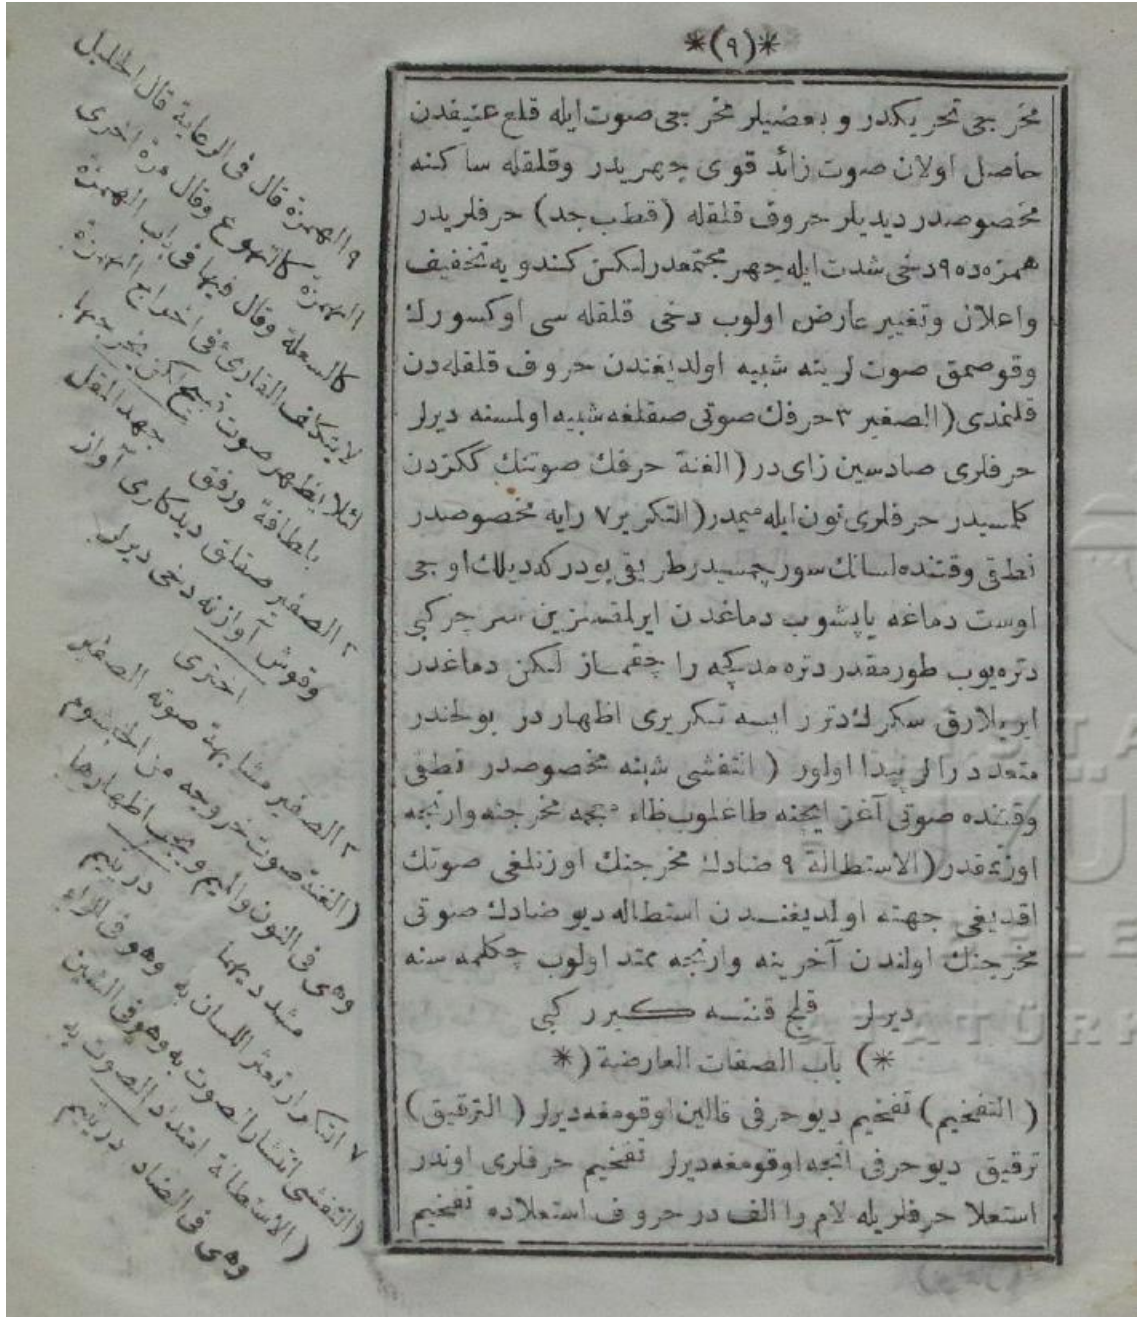 *(٩)*
مخرجی تحریکدر و بعضیلر مخرجی صوت ایله قلع عنیفدن
حاصل اولان صوت زائد قوی جهریدر وقلقله ساکنه
مخصوصدر دیدیلر حروف قلقله (قطب جد) حرفلریدر
همزه ده ٩ دخی شدت ایله جهر مجتمعدر لکن کندویه تخفیف
واعلان وتغییر عارض اولوب دخی قلقله سی اوکسورك
وقوصمق صوتلرینه شبیه اولدیغندن حروف قلقله دن
قلنمدی (الصفیر ٣ حرفك صوتی صقلغه شبیه اولمسنه دیرلر
حرفلری صاد سین زای در (الغنة حرفك صوتنك ككزدن
كلمسیدر حرفلری نون ایله میمدر (التکریر ٧ رایه مخصوصدر
نطقی وقتنده لسانك سورچمسیدر طریقی بودر که دیلك اوجی
اوست دماغه یاپشوب دماغدن ایرلمقسزین سرچر کبی
دتره یوب طورمقدر دتره مدکچه را چقماز لکن دماغدر
ایریلارق سکرك دترر ایسه تکریری اظهاردر بو لحندر
متعدد رالر پیدا اولور (التفشی شینه مخصوصدر نطقی
وقتنده صوتی آغز ایچنه طاغلوب ظاء معجمه مخرجنه وارنجه
اوزنمقدر (الاستطالة ٩ ضادك مخرجنك اوزنلغی صوتك
اقدیغی جهته اولدیغندن استطاله دیو ضادك صوتی
مخرجنك اولندن آخرینه وارنجه ممتد اولوب چكلمه سنه
دیرلر قلج قننه کیرر کبی
*) باب الصفات العارضة (*
(التفخیم) تفخیم دیو حرفی قالین اوقومغه دیرلر (الترقیق)
ترقیق دیو حرفی انجه اوقومغه دیرلر تفخیم حرفلری اوندر
استعلا حرفلریله لام را الف در حروف استعلاده تفخیم
٩ الهمزة قال فی الرعایة قال الخلیل
الهمزة كالتهوع وقال مرة اخری
كالسعلة وقال فیها فی باب الهمزة
لا یتکلف القارئ فی اخراج الهمزة
لئلا یظهر صوت قبیح لکن یخرجها
بلطافة ورفق جهد المقل
٢ الصفیر صقلق دیدکاری آواز
وقوش آوازنه دخی دیرلر
اختری
٢ الصفیر مشابهة صوته الصفیر
(الغنة صوت خروجه من الخیشوم
وهی فی النون والمیم ویجب اظهارها
مشددیهما در یتیم
٧ التکرار تعثر اللسان به وهو فی الراء
(التفشی انتشار الصوت به وهو فی الشین
(الاستطالة امتداد الصوت به
وهی فی الضاد در یتیم